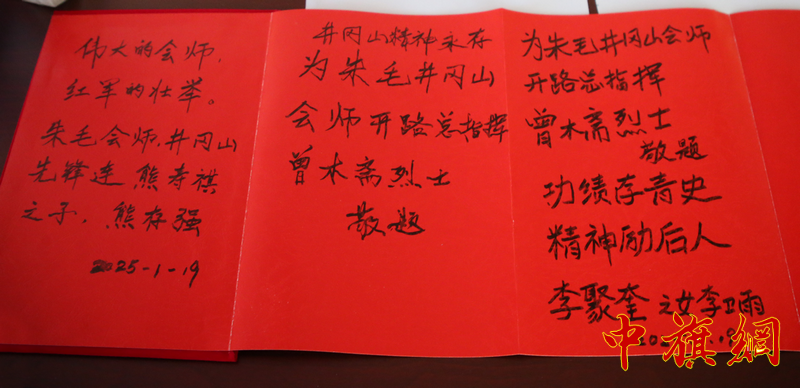 伟大的会师,
红军的壮举。
朱毛会师,井冈山
先锋连 熊寿祺
之子,熊存强
2025-1-19
井冈山精神永存
为朱毛井冈山
会师开路总指挥
曾木斋烈士
敬题
为朱毛井冈山会师
开路总指挥
曾木斋烈士
敬题
功绩存青史
精神励后人
李聚奎之女李卫雨
中旗網